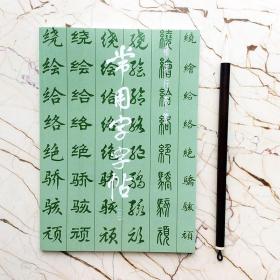 常用字字帖
繞繪給絡絕驕駭頑
繞繪給絡絕驕駭頑
绕绘给络绝骄骇顽
绕绘给络绝骄骇顽
绕绘给络绝骄骇顽
绕绘给络绝骄骇顽